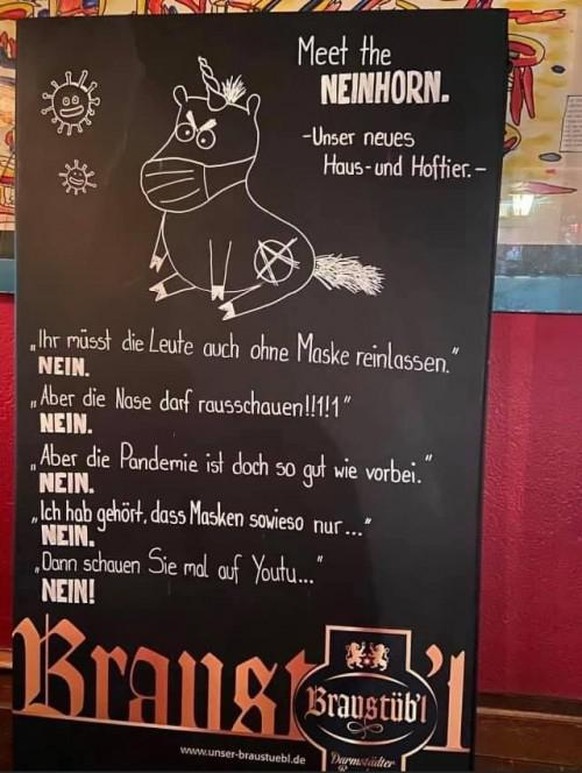 Meet the
NEINHORN.
-Unser neues
Haus- und Hoftier.-
„Ihr müsst die Leute auch ohne Maske reinlassen."
NEIN.
„Aber die Nase darf rausschauen!!1!1"
NEIN.
„Aber die Pandemie ist doch so gut wie vorbei."
NEIN.
„Ich hab gehört, dass Masken sowieso nur..."
NEIN.
„Dann schauen Sie mal auf Youtu..."
NEIN!
Braust 'l
Braustüb'l
Darmstädter
www.unser-braustuebl.de